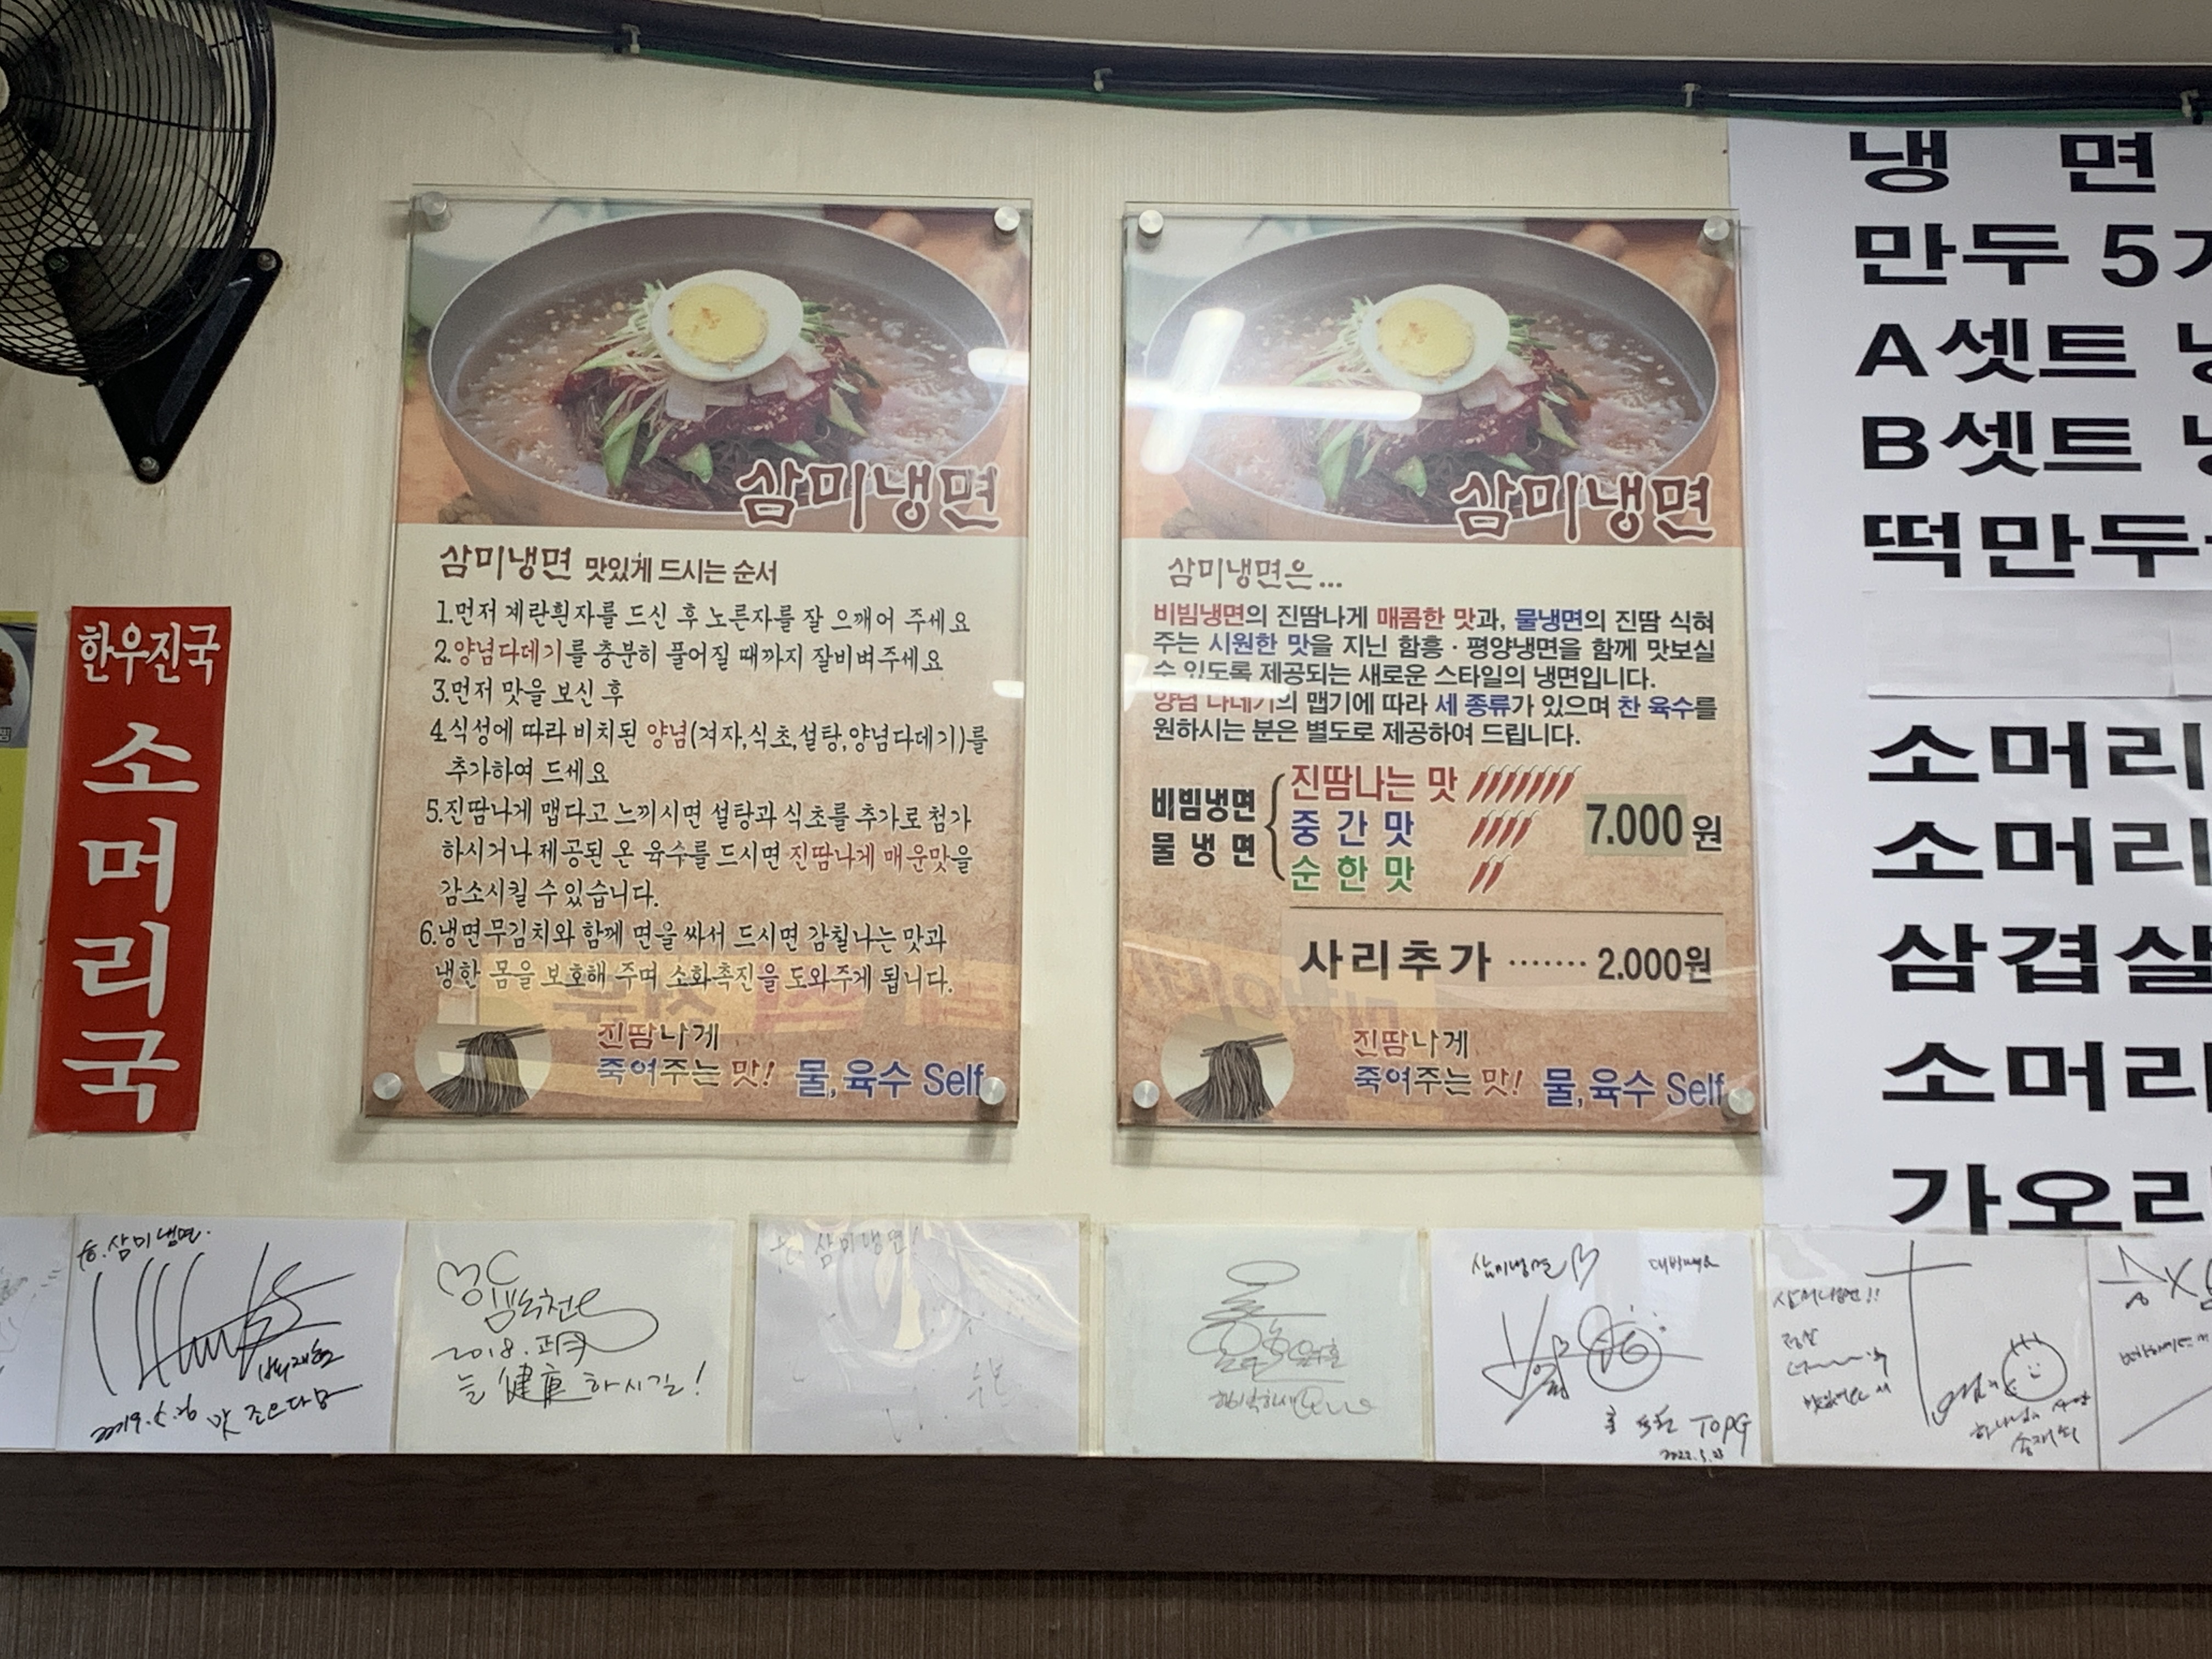 한우진국
소머리국
삼미냉면
삼미냉면 맛있게 드시는 순서
1.먼저 계란흰자를 드신 후 노른자를 잘 으깨어 주세요
2.양념다데기를 충분히 풀어질 때까지 잘비벼주세요
3.먼저 맛을 보신 후
4.식성에 따라 비치된 양념(겨자,식초,설탕,양념다데기)를
추가하여 드세요
5.진땀나게 맵다고 느끼시면 설탕과 식초를 추가로 첨가
하시거나 제공된 온 육수를 드시면 진땀나게 매운맛을
감소시킬 수 있습니다.
6.냉면무김치와 함께 면을 싸서 드시면 감칠나는 맛과
냉한 몸을 보호해 주며 소화촉진을 도와주게 됩니다.
진땀나게
죽여주는 맛! 물,육수 Self
삼미냉면
삼미냉면은...
비빔냉면의 진땀나게 매콤한 맛과, 물냉면의 진땀 식혀
주는 시원한 맛을 지닌 함흥·평양냉면을 함께 맛보실
수 있도록 제공되는 새로운 스타일의 냉면입니다.
양념 다데기의 맵기에 따라 세 종류가 있으며 찬 육수를
원하시는 분은 별도로 제공하여 드립니다.
비빔냉면
물냉면
진땀나는 맛
중간맛
순한맛
7.000원
사리추가 ······· 2.000원
진땀나게
죽여주는 맛! 물,육수 Self
냉 면
만두 5
A셋트
B셋트
떡만두
소머리
소머리
삼겹살
소머리
가오리
삼미냉면
2019.5.26 맛 조으다
MC
2018.
늘 健康 하시길!
삼미냉면!
삼미냉면
TOPG
2022.5.23